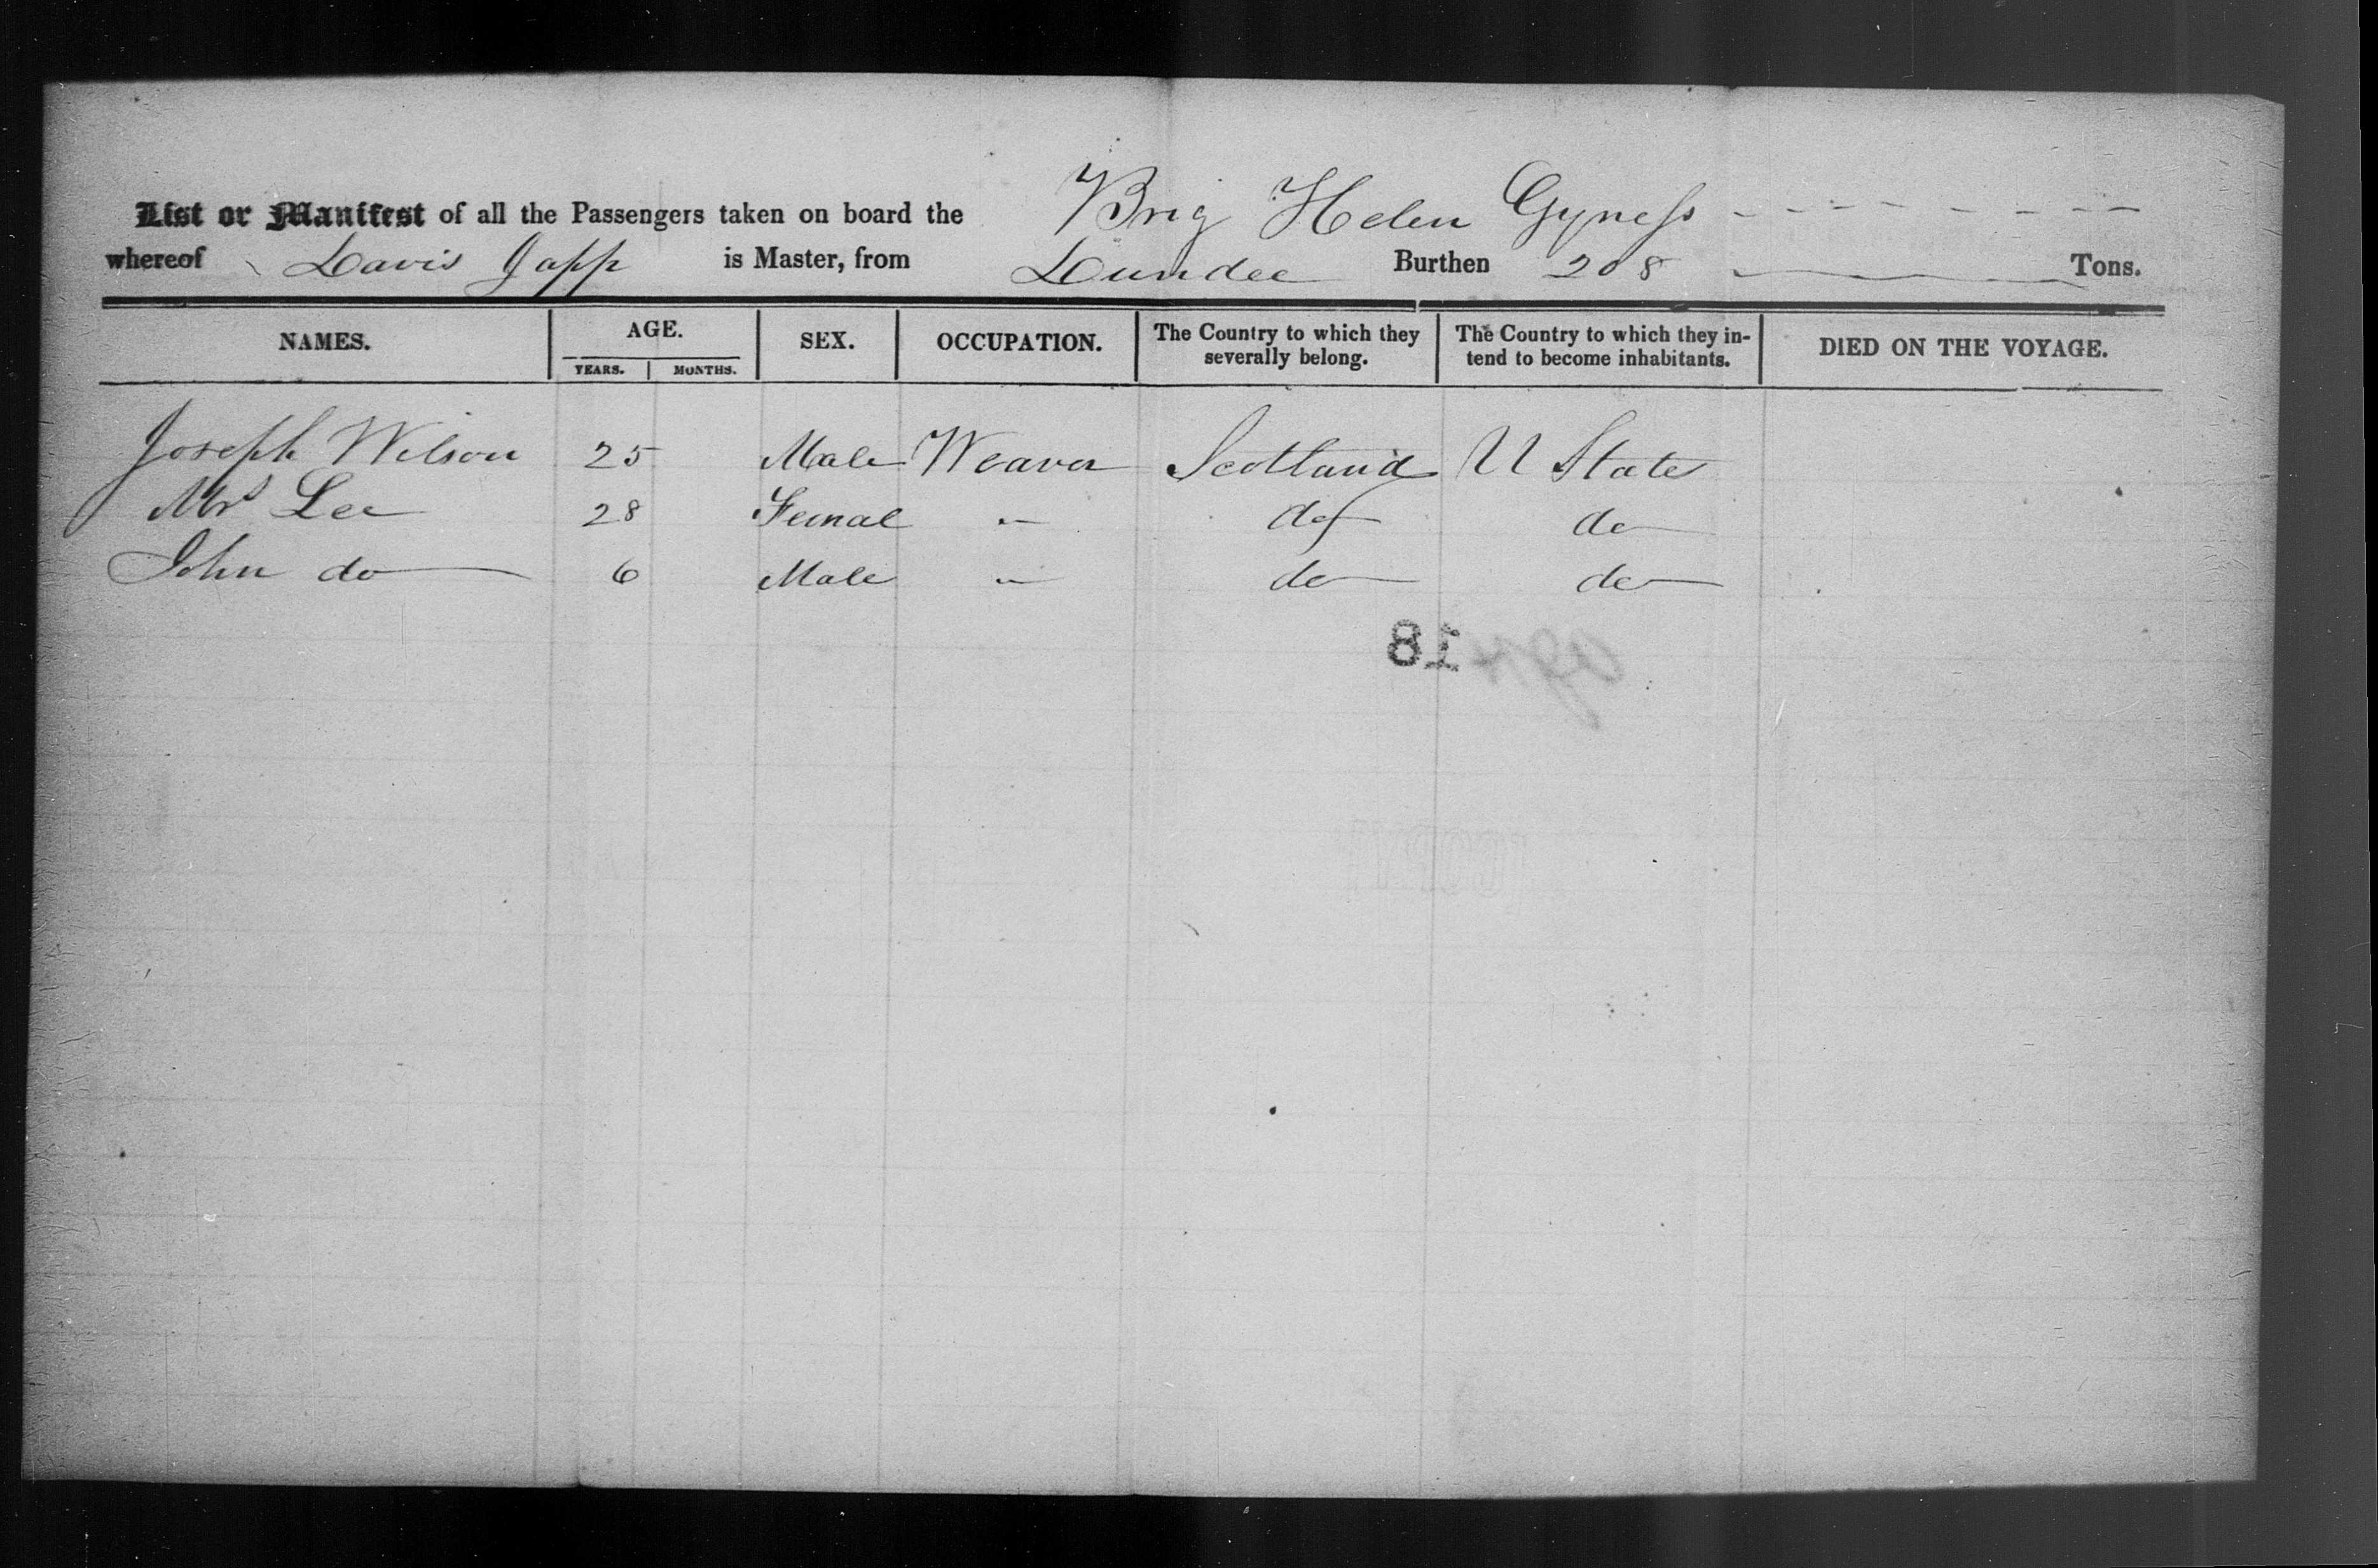 List or Manifest of all the Passengers taken on board the Brig Helen Gyness
whereof Davis Japp is Master, from Dundee Burthen 208 Tons.
NAMES. AGE. SEX. OCCUPATION. The Country to which they severally belong. The Country to which they in-tend to become inhabitants. DIED ON THE VOYAGE.
YEARS. MONTHS.
Joseph Wilson 25 Male Weaver Scotland U State
Mrs Lee 28 Female " do do
John do 6 Male " do do
18